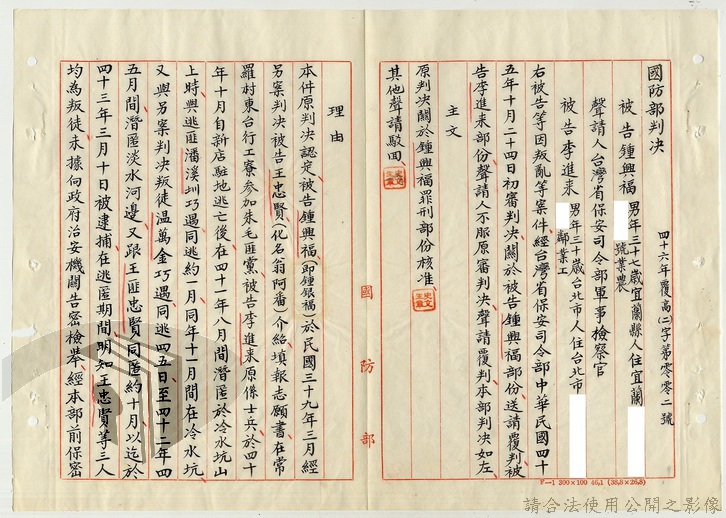 國防部判決
四十六年覆高(二)字第零零二號
被告鍾興福 男年三十七歲宜蘭縣人住宜蘭
號業農
聲請人台灣省保安司令部軍事檢察官
被告李進來 男年三十歲台北市人住台北市
鄰業工
右被告等因叛亂等案件經台灣省保安司令部中華民國四十
五年十月二十四日初審判決關於被告鍾興福部份送請覆判被
告李進來部份聲請人不服原審判決聲請覆判本部判決如左
主文
原判決關於鍾興福罪刑部份核准
其他聲請駁回
理由
本件原判決認定被告鍾興福(即鍾銀福)於民國三十九年三月經
另案判決被告王忠賢(化名翁阿番)介紹填報志願書在常
羅村東台行工寮參加朱毛匪黨被告李進來原係士兵於四十
年十月自新店駐地逃亡後在四十一年八月間潛匿於冷水坑山
上時與逃匪潘溪圳巧遇同逃約一月同年十二月間在冷水坑
又與另案判決叛徒溫萬金巧遇同逃四五日至四十二年四
五月間潛匿淡水河邊又跟王匪忠賢同匿約十月以迄於
四十三年三月十日被逮捕在逃匿期間明知王忠賢等三人
均為叛徒未據向政府治安機關告密檢舉經本部前保密
國防部
F-1 300×100 46,1 (38,8×26,8)
請合法使用公開之影像